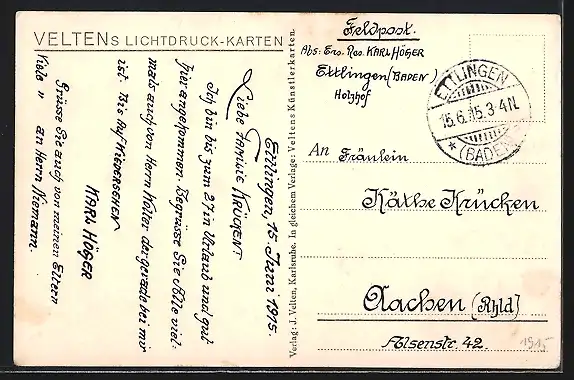 VELTENS LICHTDRUCK-KARTEN
Ettlingen, 15. Juni 1915.
Liebe FAMILIE KRÜCKEN
Ich bin bis zum 27 in Urlaub und gut
hier angekommen. Begrüsse Sie Alle viel-
mals auch von Herrn Walter der gerade bei mir
ist Bis AUf WIEDERSEHEN
KARL HÖGER
Grüsse Sie auch von meinen Eltern
Viele " an Herrn Niemann.
Verlag: J. Velten, Karlsruhe. In gleichem Verlage: Veltens Künstlerkarten.
Feldpost.
Abs: Ers. Res. KARL HÖGER
Ettlingen (BADEN)
Holzhof
ETTLINGEN
15.6.15.3-4N.
* (BADEN)
An Fräulein
Käthe Krücken
Aachen (Rhld)
Alsenstr. 42.
1915